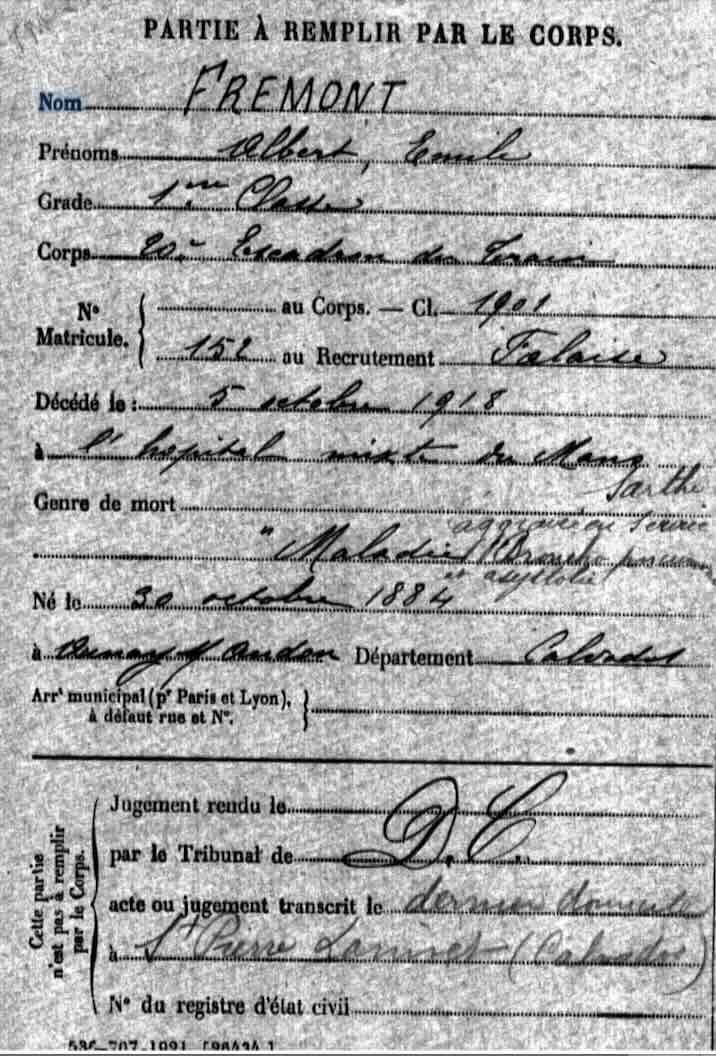 PARTIE À REMPLIR PAR LE CORPS.
Nom FREMONT
Prénoms Albert, Emile
Grade 1re Classe
Corps 20e Escadron du Train
No Matricule. { au Corps. — Cl. 1901
152 au Recrutement Falaise
Décédé le : 5 octobre 1918
à l'hôpital mixte du Mans
Sarthe
Genre de mort
aggravée en Service
" Maladie Broncho pneumonie
et asystolie
Né le 30 octobre 1884
à Aunay s/ Département Calvados
Arrt municipal (pr Paris et Lyon), }
à défaut rue et No.
Cette partie n'est pas à remplir par le Corps.
Jugement rendu le
par le Tribunal de D. C.
acte ou jugement transcrit le dernier domicile
à St Pierre (Calvados)
No du registre d'état civil
[26434.]